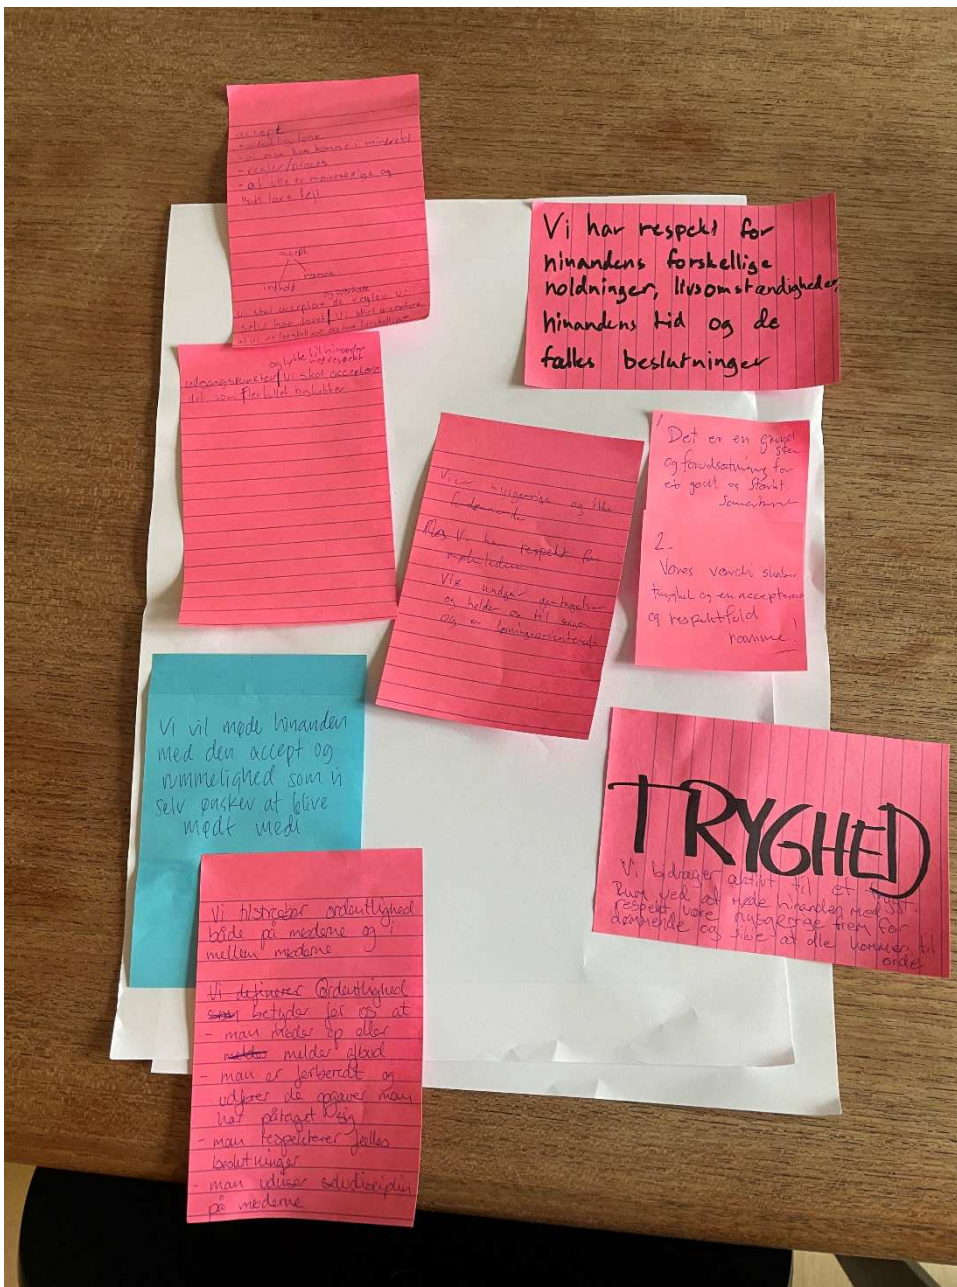 accept
- ordentlig tone
- at man kan komme i mindretal
- regler/proces
- at alle er menneskelige og
kan lave fejl
accept
ramme
indhold
og overholde
Vi skal acceptere de regler vi
selv har lavet | Vi skal acceptere
at vi er forskellige og har forskellige
og lytte til hinanden
med respekt
udgangspunkter | Vi skal acceptere
det som flertallet beslutter
Vi har respekt for
hinandens forskellige
holdninger, livsomstændigheder,
hinandens tid og de
fælles beslutninger
Vi er nysgerrige og ikke
fordømmende
Vi har respekt for
mødelederen
Vi undgår gentagelser
og holder os til sagen
og er løsningsorienterede
1
Det er en grund
sten
og forudsætning for
et godt og stærkt
samarbejde
2.
Vores værdi skaber
tryghed og en accepterende
og respektfuld
ramme!
Vi vil møde hinanden
med den accept og
rummelighed som vi
selv ønsker at blive
mødt med
TRYGHED
Vi bidrager aktivt til et trygt
Rum ved at møde hinanden med
respekt, være nysgerrige frem for
dømmende og sikre at alle kommer til
orde
Vi tilstræber ordentlighed
både på møderne og i
mellem møderne
Vi definerer Ordentlighed
som betyder for os at
- man møder op eller
melder melder afbud
- man er forberedt og
udfører de opgaver man
har påtaget sig
- man respekterer fælles
beslutninger
- man udviser selvdisciplin
på møderne